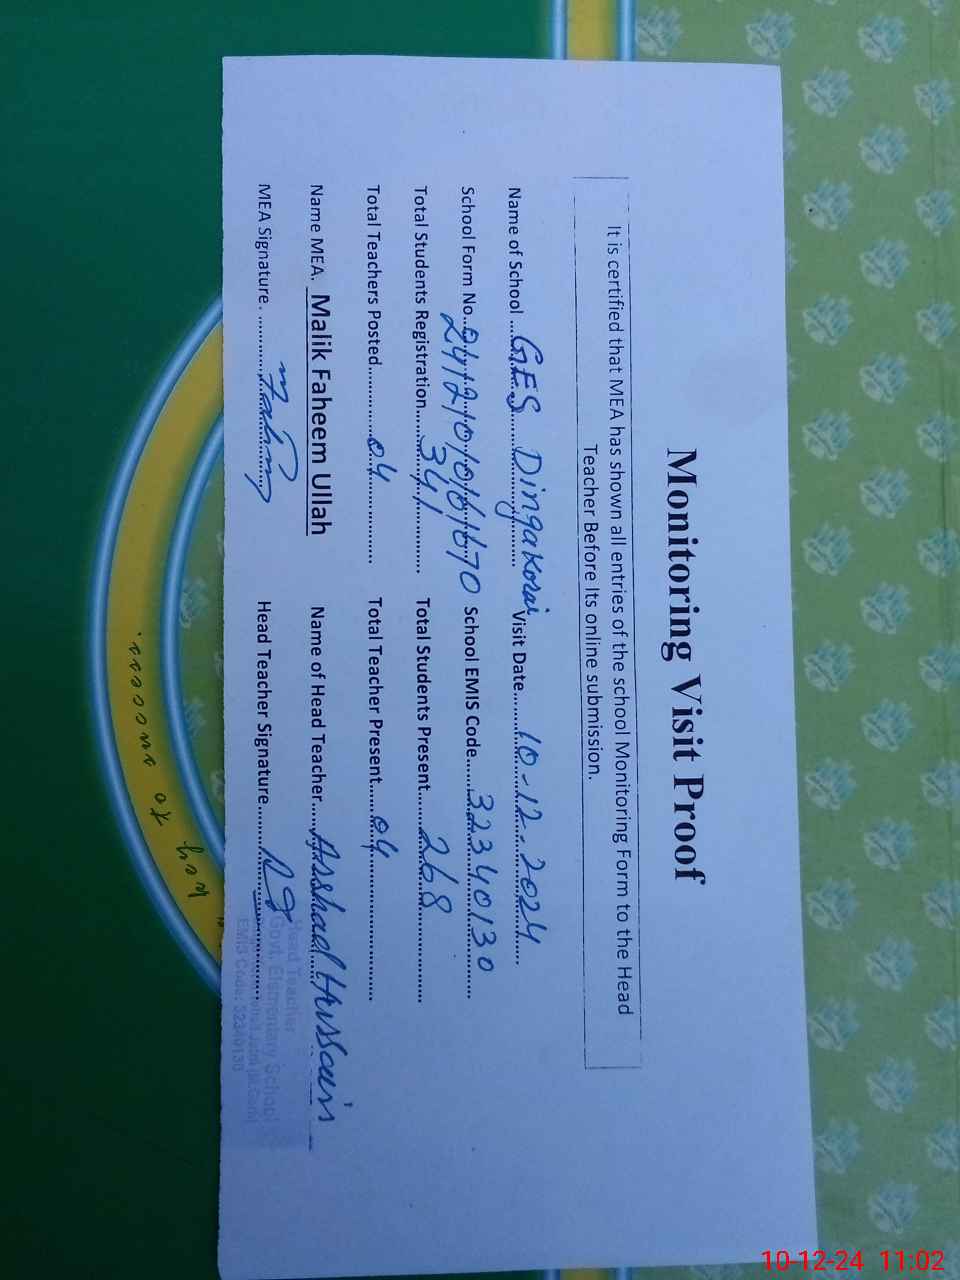 Monitoring Visit Proof
It is certified that MEA has shown all entries of the school Monitoring Form to the Head
Teacher Before Its online submission.
Name of School ....GES Dingakorai Visit Date..........10-12-2024
School Form No..241210101670 School EMIS Code......32340130
Total Students Registration......341 Total Students Present......268
Total Teachers Posted............04 Total Teacher Present......04
Name MEA. Malik Faheem Ullah Name of Head Teacher....Arshad Hussain
MEA Signature. Head Teacher Signature.
Head Teacher
Govt. Elementary School
EMIS Code: 32340130
key to success.
10-12-24 11:02